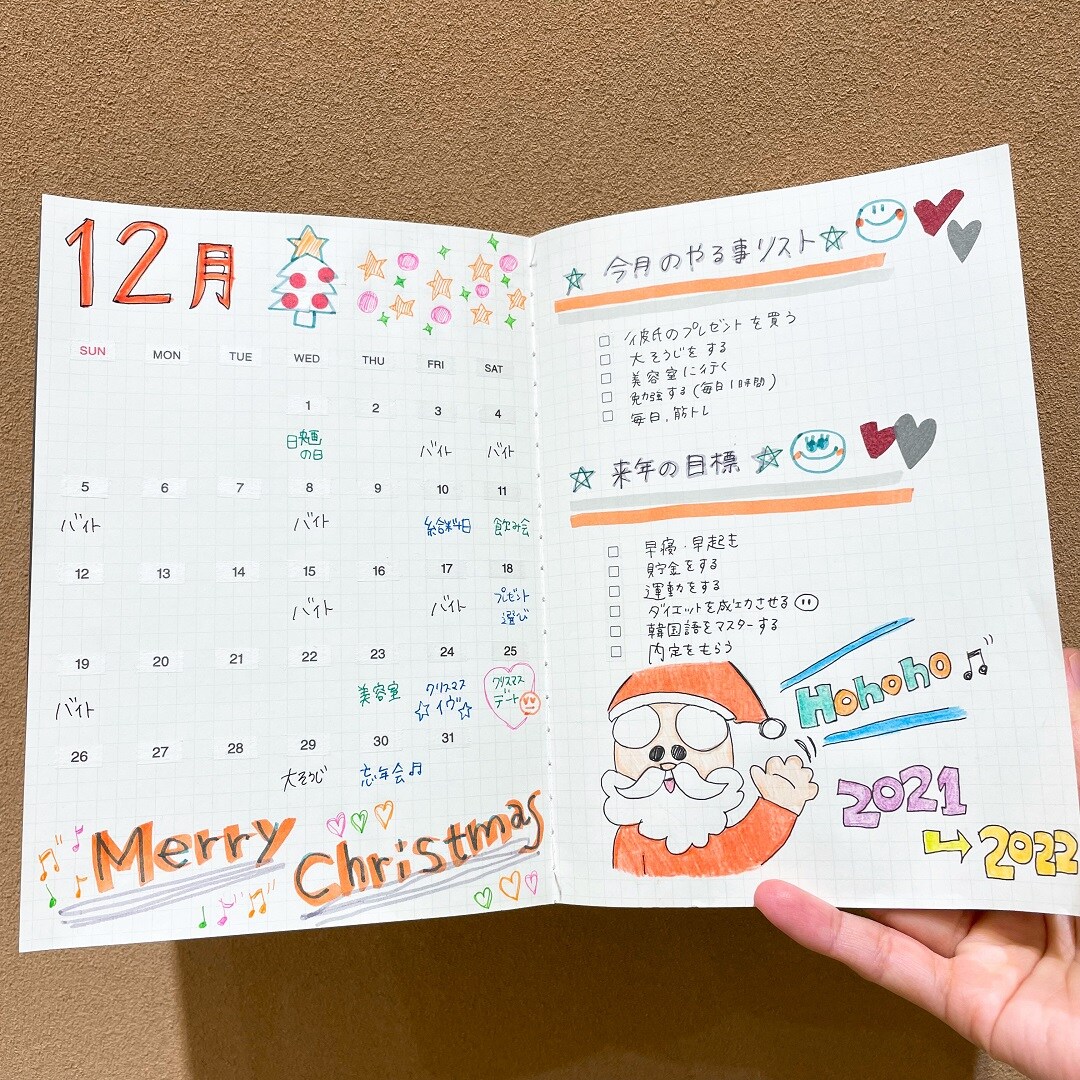 12月
SUN MON TUE WED THU FRI SAT
1 2 3 4
映画の日 バイト バイト
5 6 7 8 9 10 11
バイト バイト 給料日 飲み会
12 13 14 15 16 17 18
バイト バイト プレゼント選び
19 20 21 22 23 24 25
バイト 美容室 クリスマスイヴ クリスマスデート
26 27 28 29 30 31
大そうじ 忘年会
Merry Christmas
今月のやる事リスト
彼氏のプレゼントを買う
大そうじをする
美容室に行く
勉強する(毎日1時間)
毎日、筋トレ
来年の目標
早寝・早起き
貯金をする
運動をする
ダイエットを成功させる
韓国語をマスターする
内定をもらう
Hohoho
2021
→2022